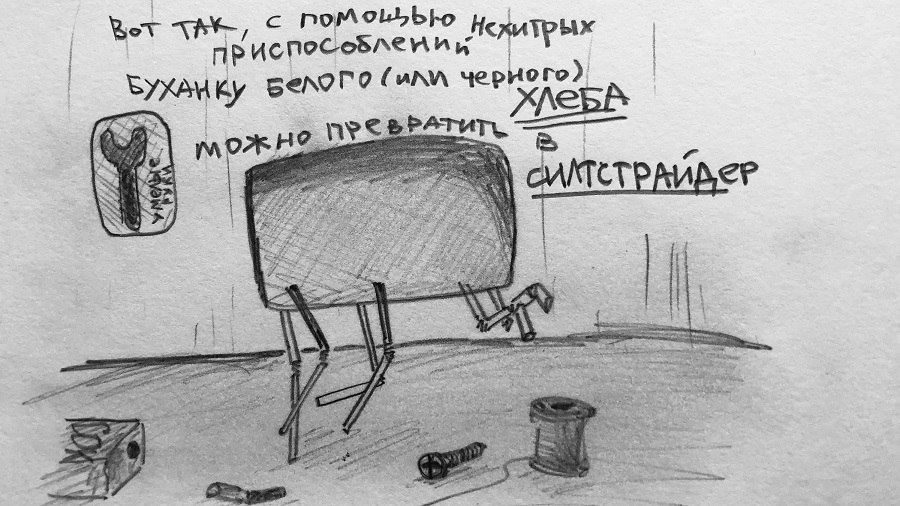 Вот так, с помощью нехитрых
приспособлений
буханку белого (или черного)
хлеба
можно превратить
в
силтстрайдер